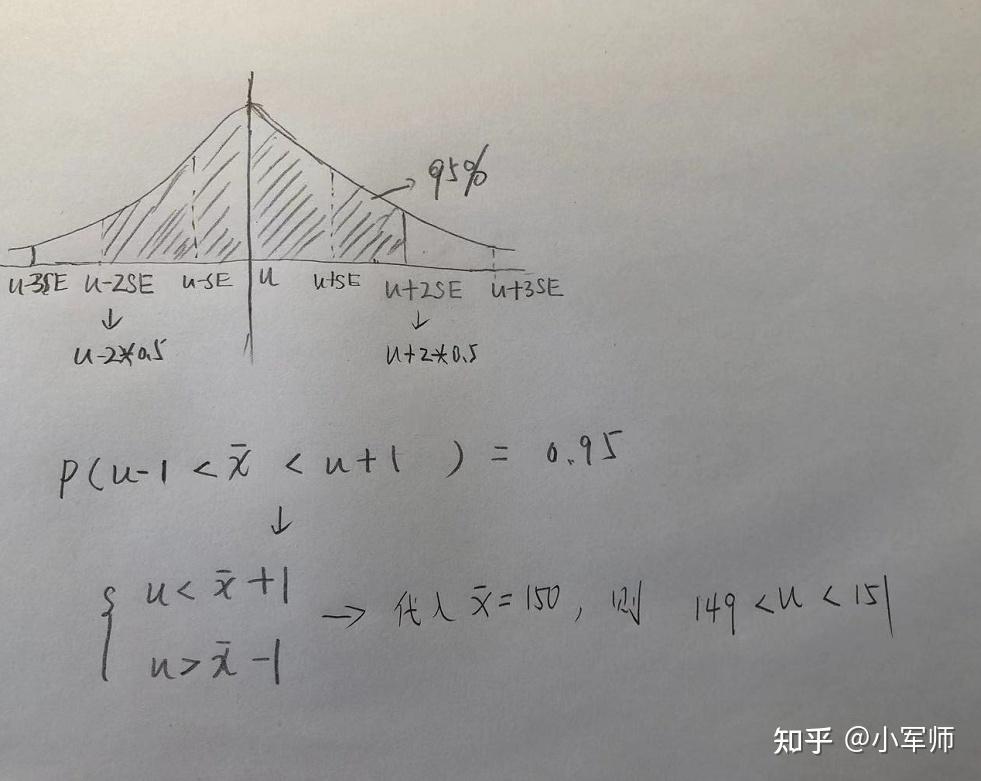 95%
u-3SE u-2SE u-SE u u+SE u+2SE u+3SE
↓ ↓
u-2*0.5 u+2*0.5
P(u-1 < x̄ < u+1 ) = 0.95
↓
{ u < x̄ +1
→ 代入 x̄=150, 则 149 <u < 151
u > x̄ -1
知乎 @小军师